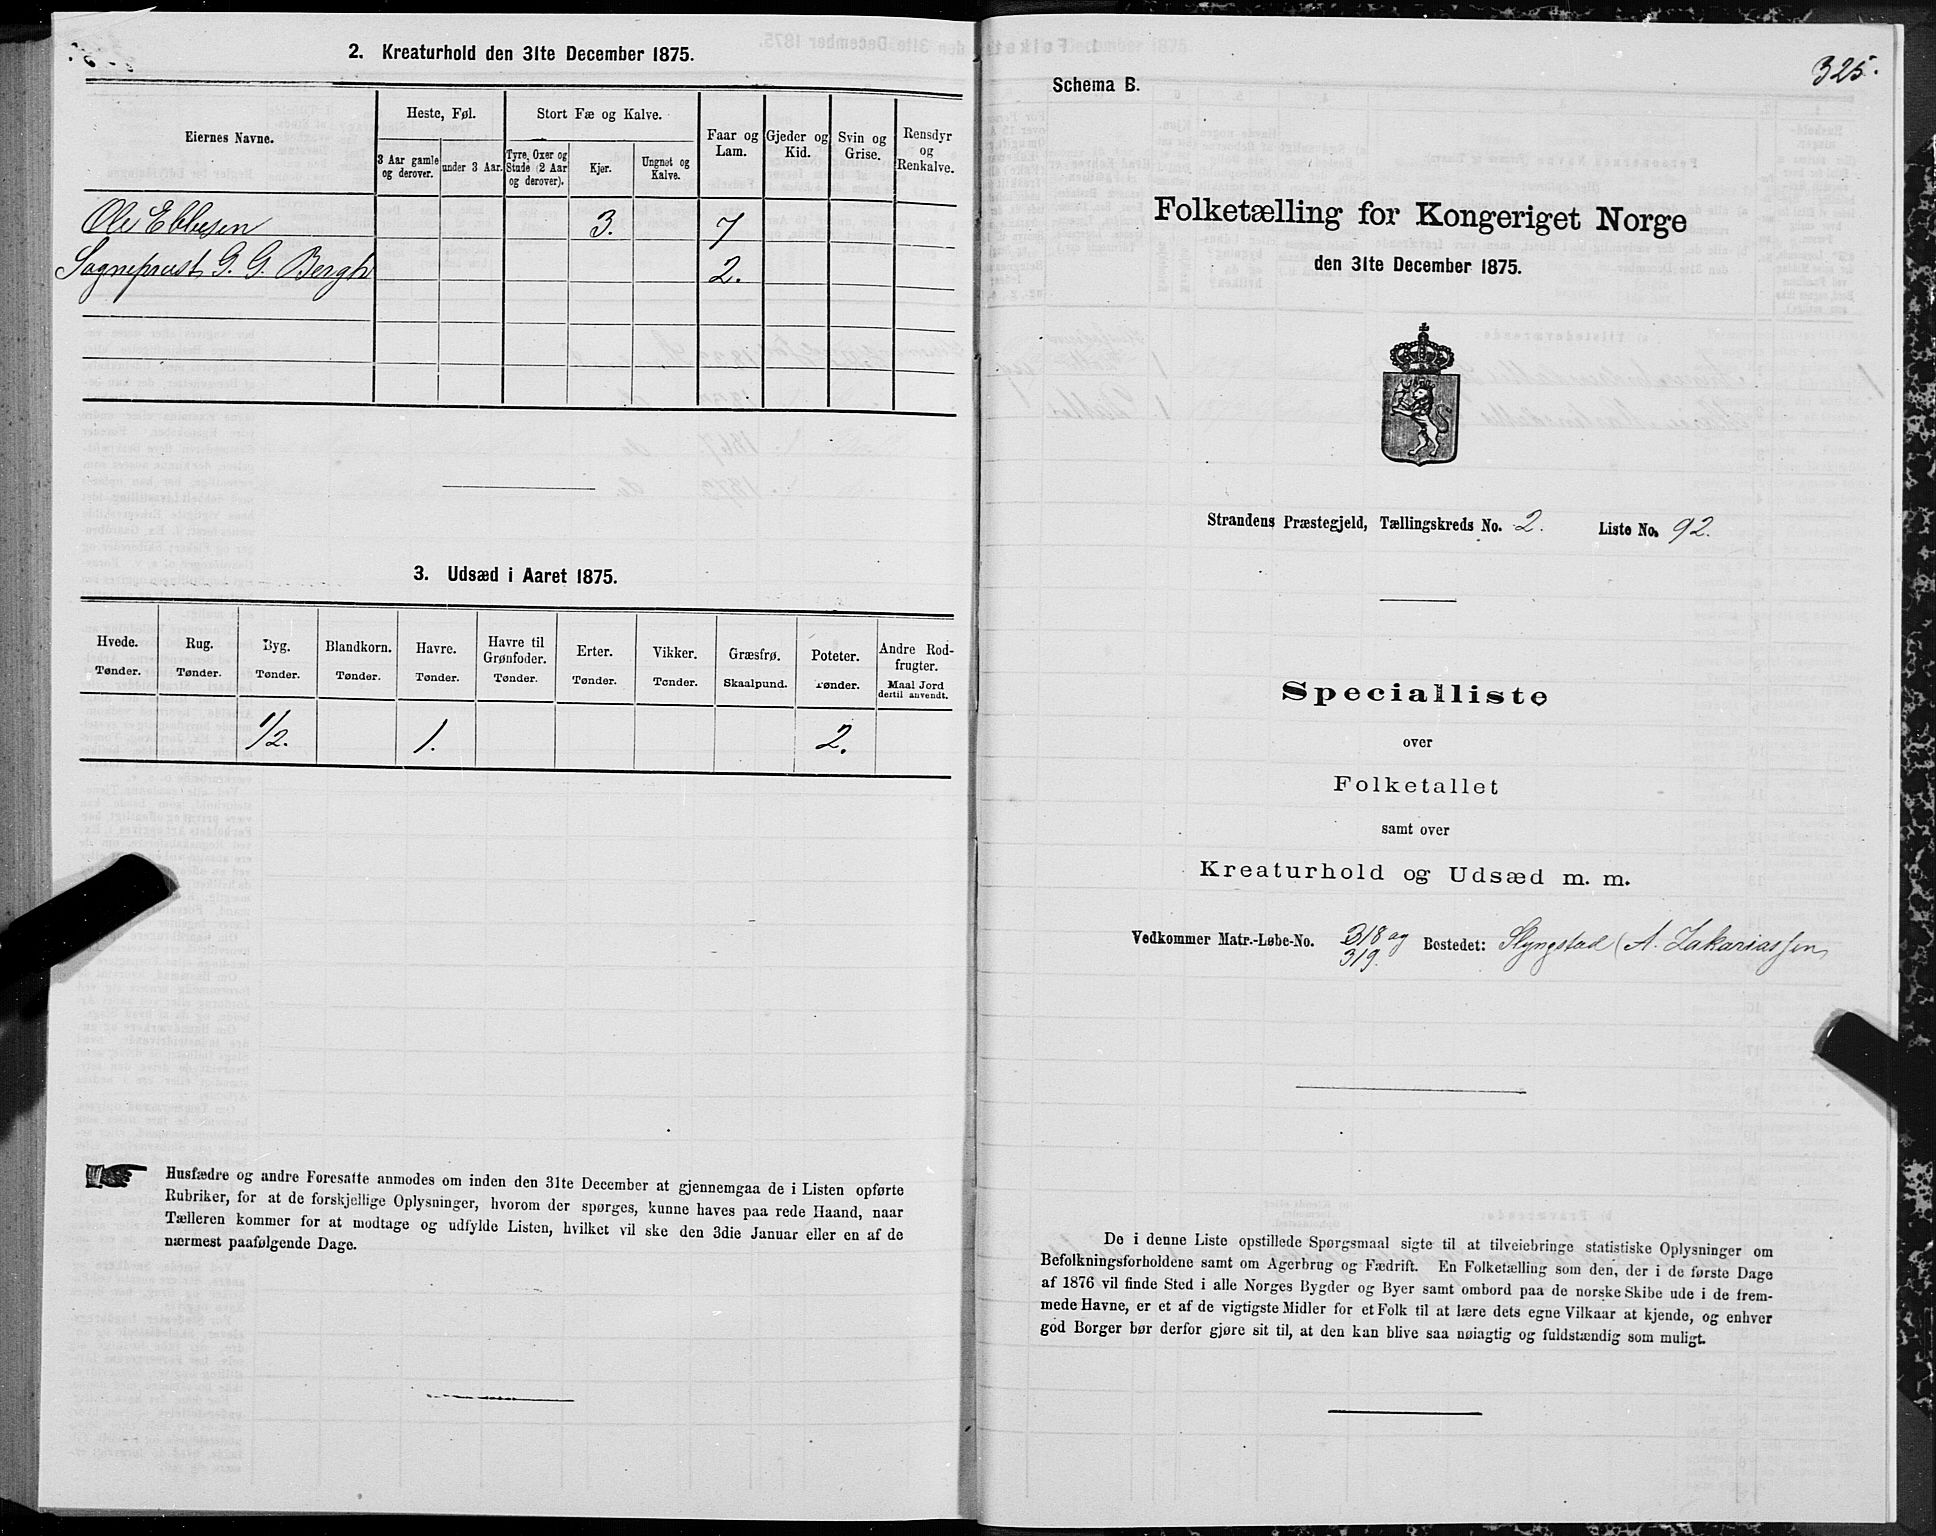 2. Kreaturhold den 31te December 1875.
Eiernes Navne.
Heste, Føl.
Stort Fæ og Kalve.
Faar og Lam.
Gjeder og Kid.
Svin og Grise.
Rensdyr og Renkalve.
3 Aar gamle og derover.
under 3 Aar.
Tyre, Oxer og Stude (2 Aar og derover).
Kjer.
Ungnøt og Kalve.
Ole Ebbesen 3. 7
Sognepræst G. G. Bergh 2.
3. Udsæd i Aaret 1875.
Hvede. Rug. Byg. Blandkorn. Havre. Havre til Grønfoder. Erter. Vikker. Græsfrø. Poteter. Andre Rodfrugter.
Tønder. Tønder. Tønder. Tønder. Tønder. Tønder. Tønder. Tønder. Skaalpund. Tønder. Maal Jord dertil anvendt.
1/2. 1. 2.
Husfædre og andre Foresatte anmodes om inden den 31te December at gjennemgaa de i Listen opførte
Rubriker, for at de forskjellige Oplysninger, hvorom der spørges, kunne haves paa rede Haand, naar
Tælleren kommer for at modtage og udfylde Listen, hvilket vil ske den 3die Januar eller en af de
nærmest paafølgende Dage.
325.
Schema B.
Folketælling for Kongeriget Norge
den 31te December 1875.
Strandens Præstegjeld, Tællingskreds No. 2. Liste No. 92.
Specialliste
over
Folketallet
samt over
Kreaturhold og Udsæd m. m.
Vedkommer Matr.-Løbe-No. 318 og Bostedet: Slyngstad (A. Zakariassen
319.
De i denne Liste opstillede Spørgsmaal sigte til at tilveiebringe statistiske Oplysninger om
Befolkningsforholdene samt om Agerbrug og Fædrift. En Folketælling som den, der i de første Dage
af 1876 vil finde Sted i alle Norges Bygder og Byer samt ombord paa de norske Skibe ude i de frem-
mede Havne, er et af de vigtigste Midler for et Folk til at lære dets egne Vilkaar at kjende, og enhver
god Borger bør derfor gjøre sit til, at den kan blive saa nøiagtig og fuldstændig som muligt.